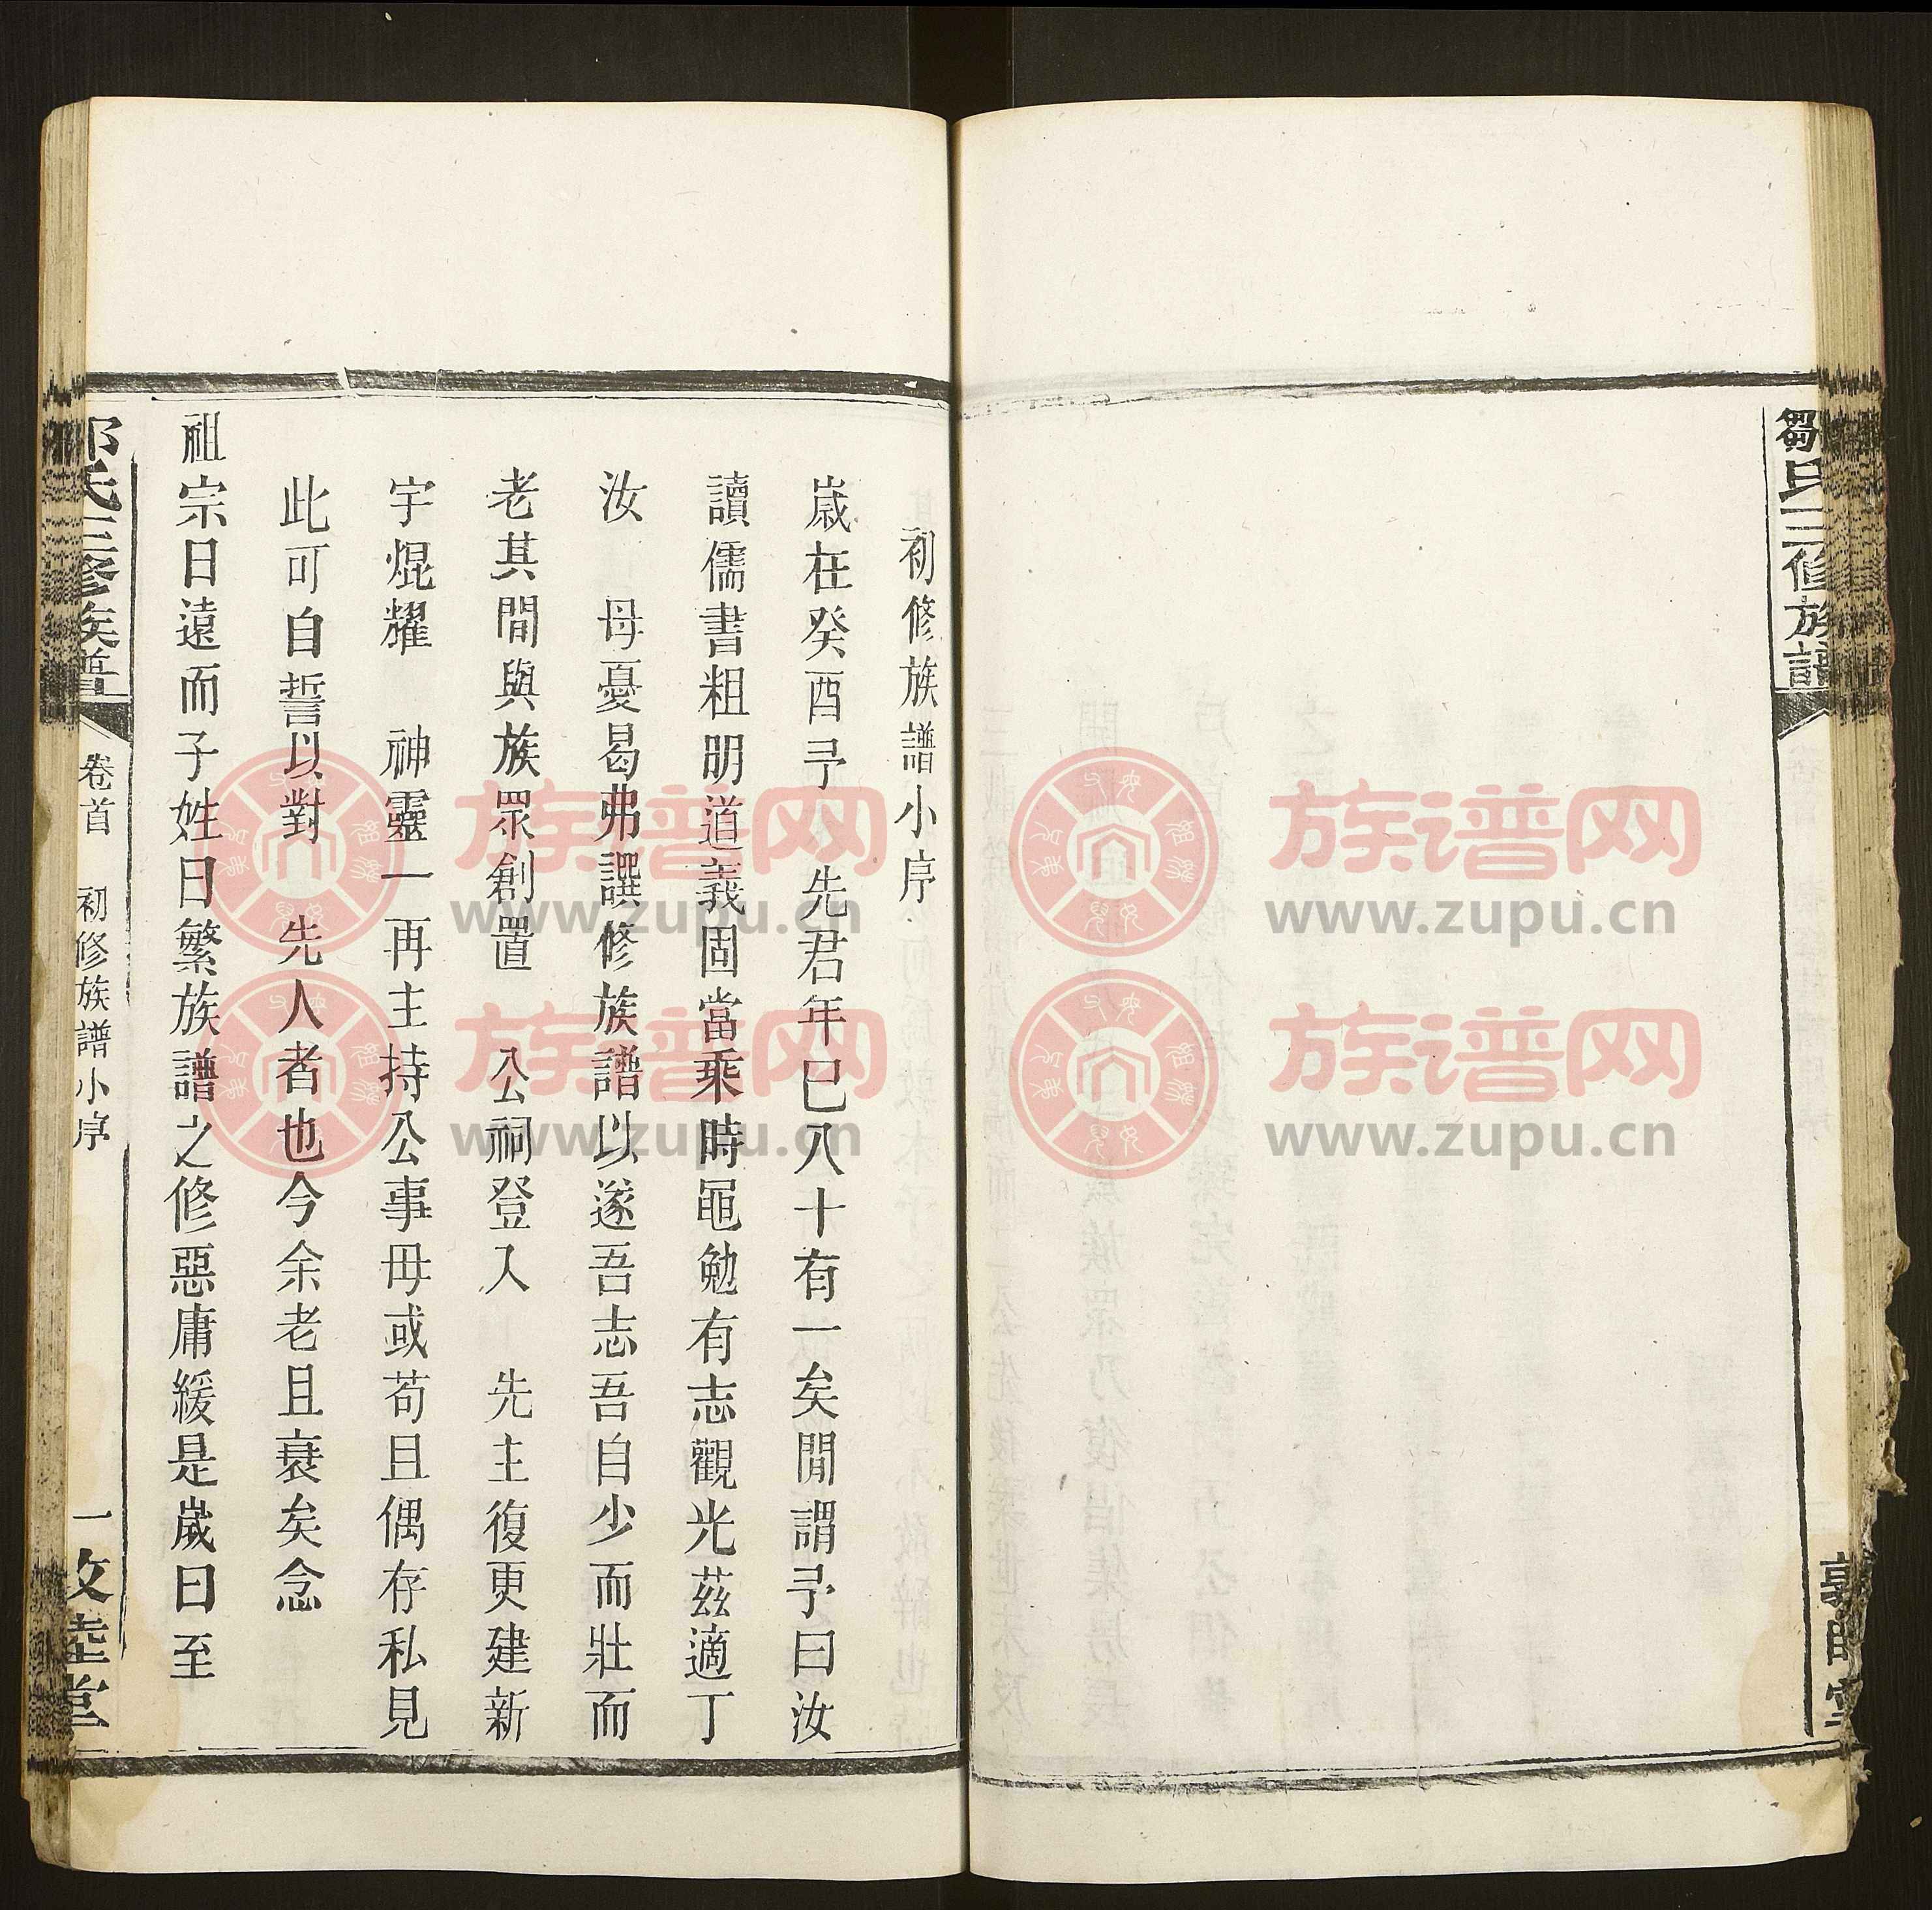 鄒氏三修族譜
初修族譜小序
歲在癸酉予 先君年已八十有一矣閒謂予曰汝
讀儒書粗明道義固當乘時黽勉有志觀光茲適丁
汝 母憂曷弗譔修族譜以遂吾志吾自少而壯而
老其間與族眾創置 公祠登入 先主復更建新
宇焜耀 神靈一再主持公事毋或苟且偶存私見
此可自誓以對 先人者也今余老且衰矣念
祖宗日遠而子姓日繁族譜之修惡庸緩是歲曰至
卷首 初修族譜小序 一
族谱网
www.zupu.cn
族谱网
www.zupu.cn
族谱网
www.zupu.cn
族谱网
www.zupu.cn